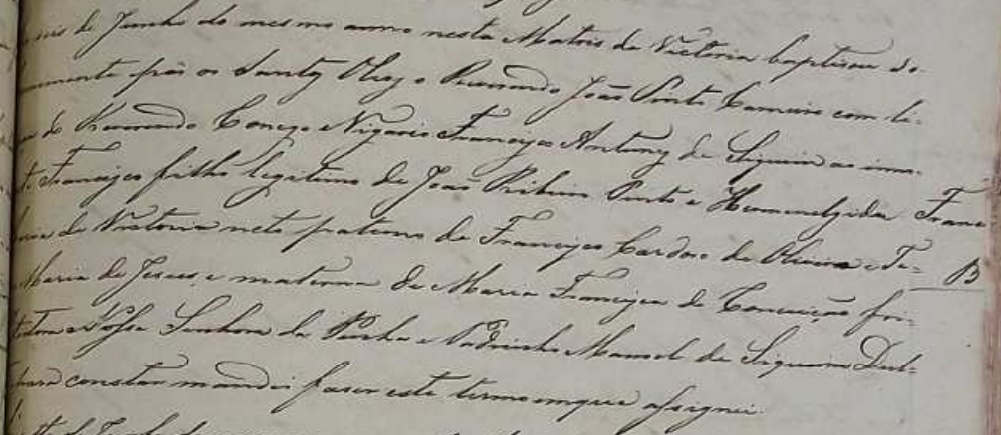 de Junho do mesmo anno nesta Matris da Victoria baptisou so-
mente pôs os Santos Oleos o Reverendo João Pinto Carneiro com li-
do Reverendo Conego Vigario Francisco Antunes de Siqueira ao inno-
Francisco filho legitimo de João Ribeiro Pinto e Hermenegilda Fran
da Victoria neto paterno de Francisco Cardoso de Oliveira e
B
Maria de Jesus, e materno de Maria Francisca da Conceição fo-
Nossa Senhora da Penha e Padrinho Manoel de Siqueira
para constar mandei faser este termo em que assignei.
de Junho